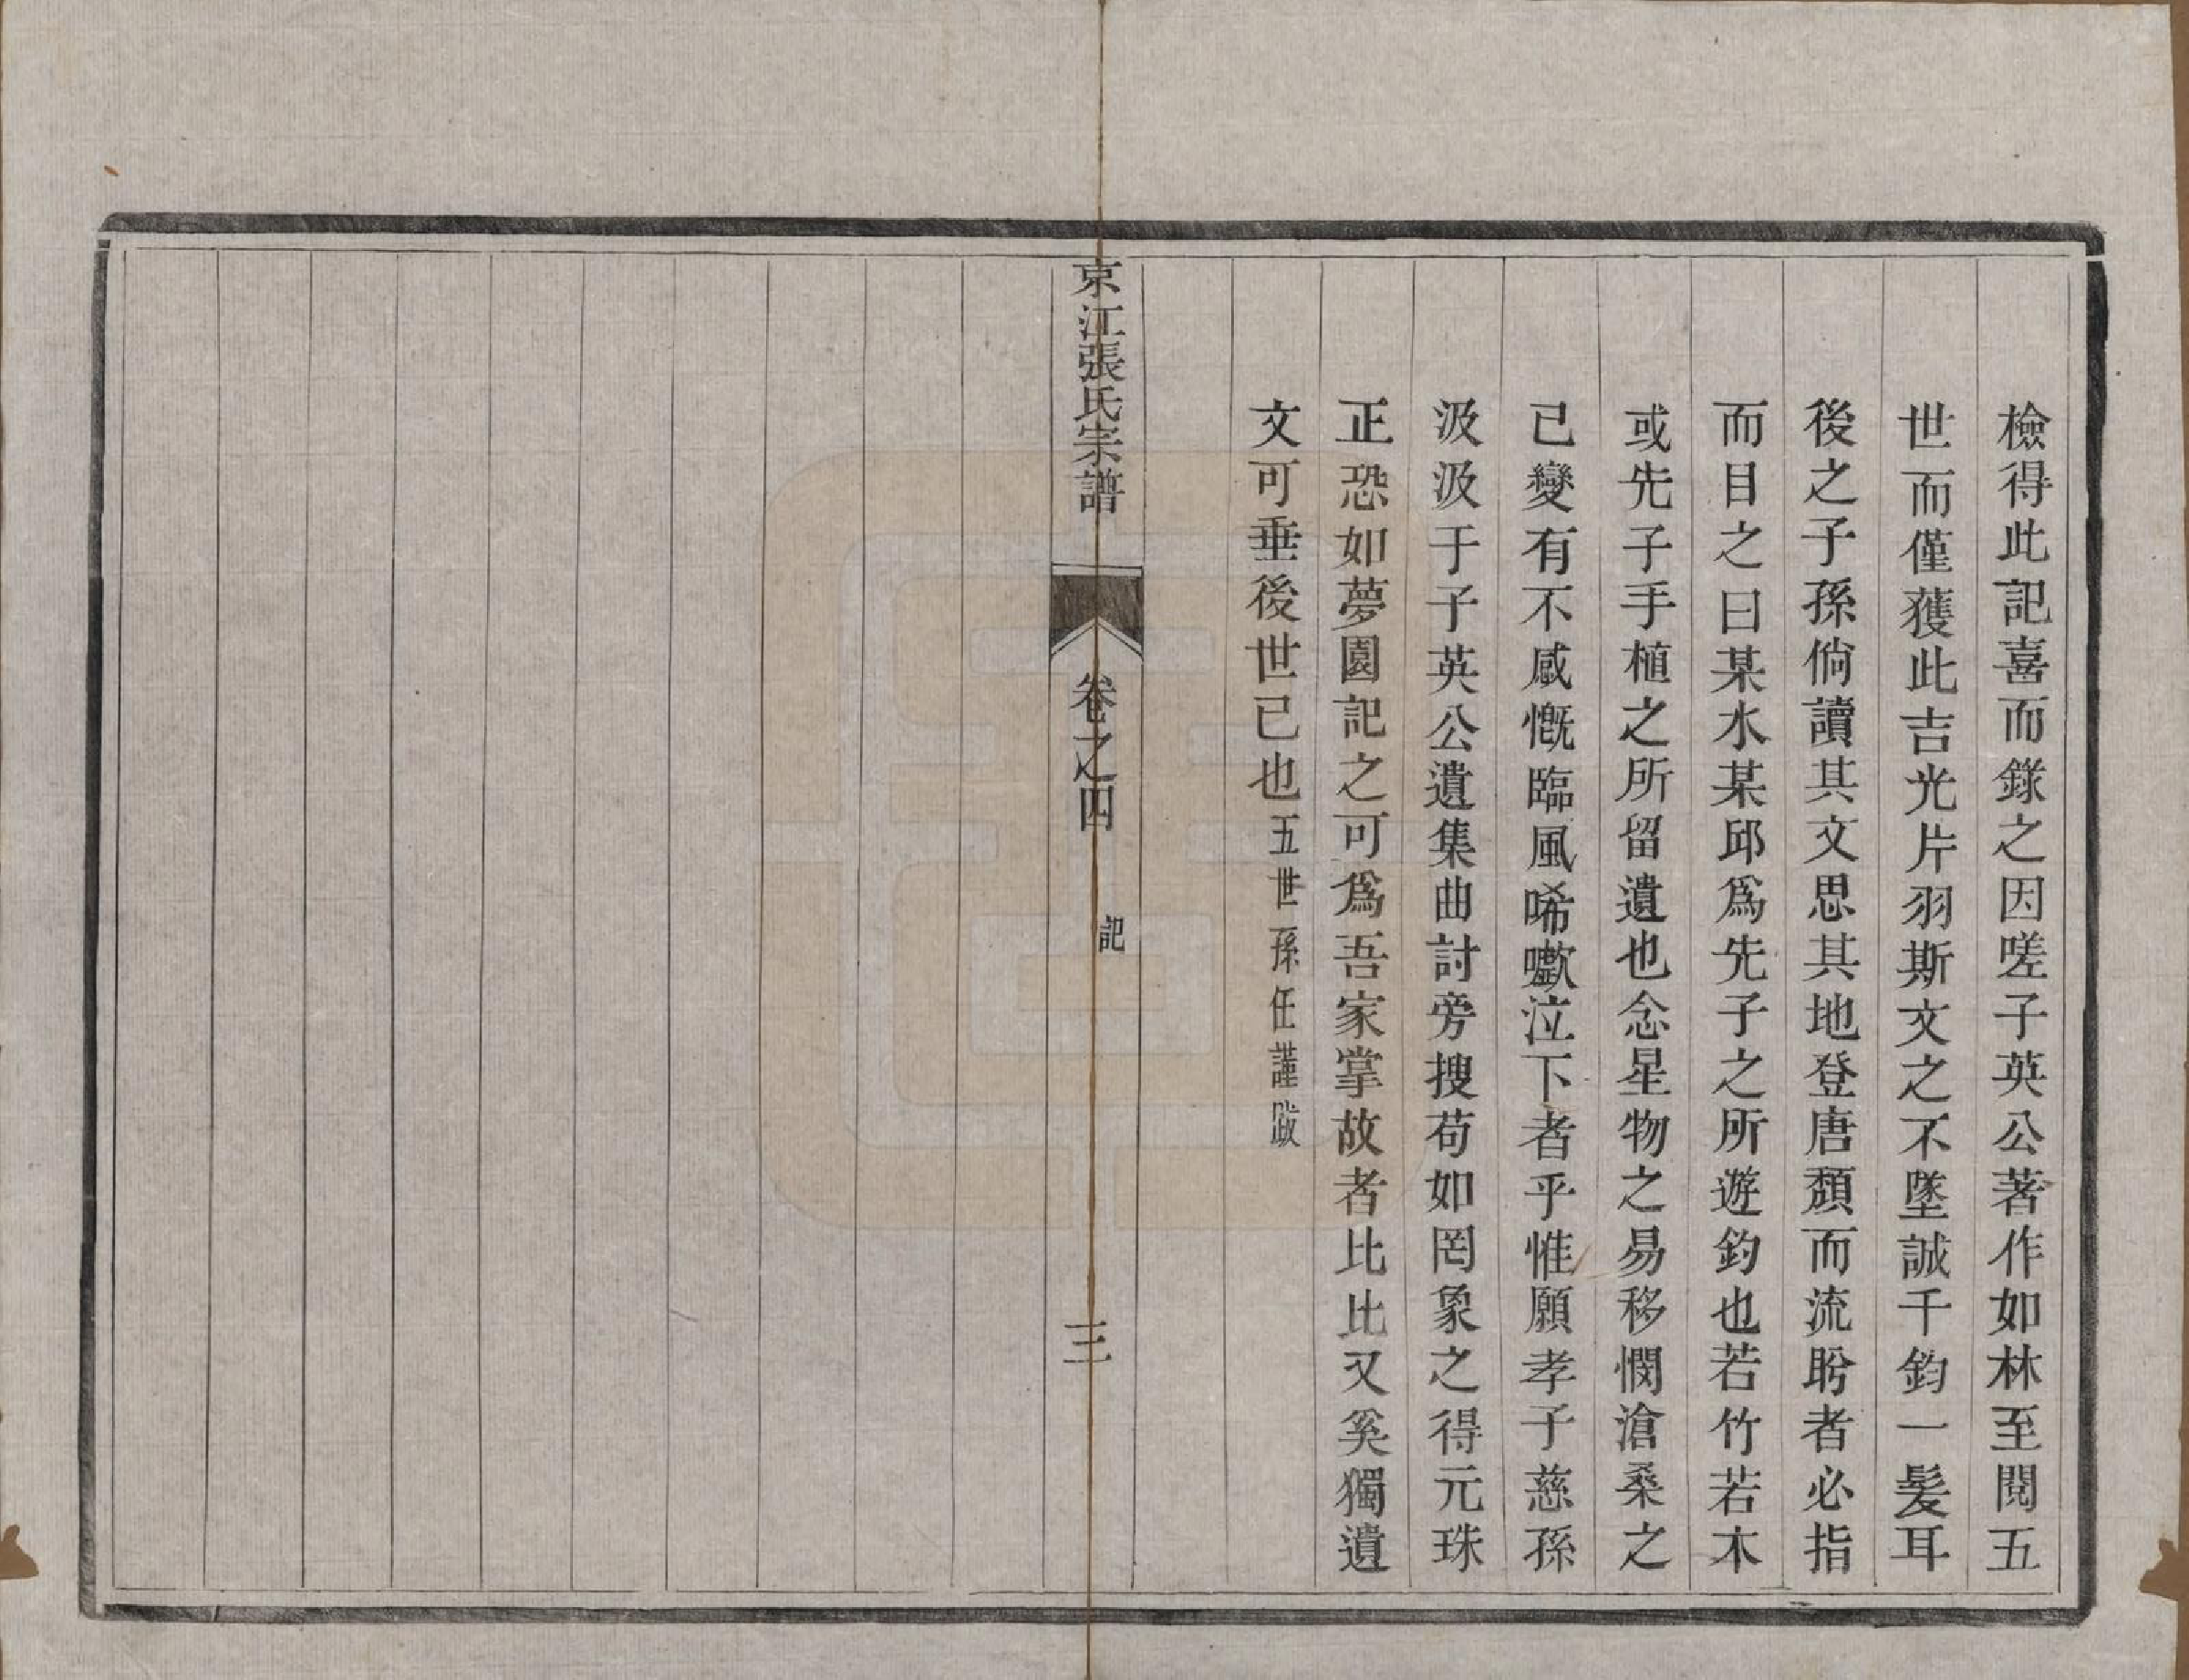 檢得此記喜而錄之因嗟子英公著作如林至閱五
世而僅獲此吉光片羽斯文之不墜誠千鈞一髮耳
後之子孫倘讀其文思其地登唐頹而流盻者必指
而目之曰某水某邱爲先子之所遊釣也若竹若木
或先子手植之所留遺也念星物之易移憫滄桑之
已變有不感慨臨風唏嚱泣下者乎惟願孝子慈孫
汲汲于子英公遺集曲討旁搜苟如罔象之得元珠
正恐如夢園記之可爲吾家掌故者比比又奚獨遺
文可垂後世已也五世孫任謹跋
京江張氏宗譜
卷之四
記
三